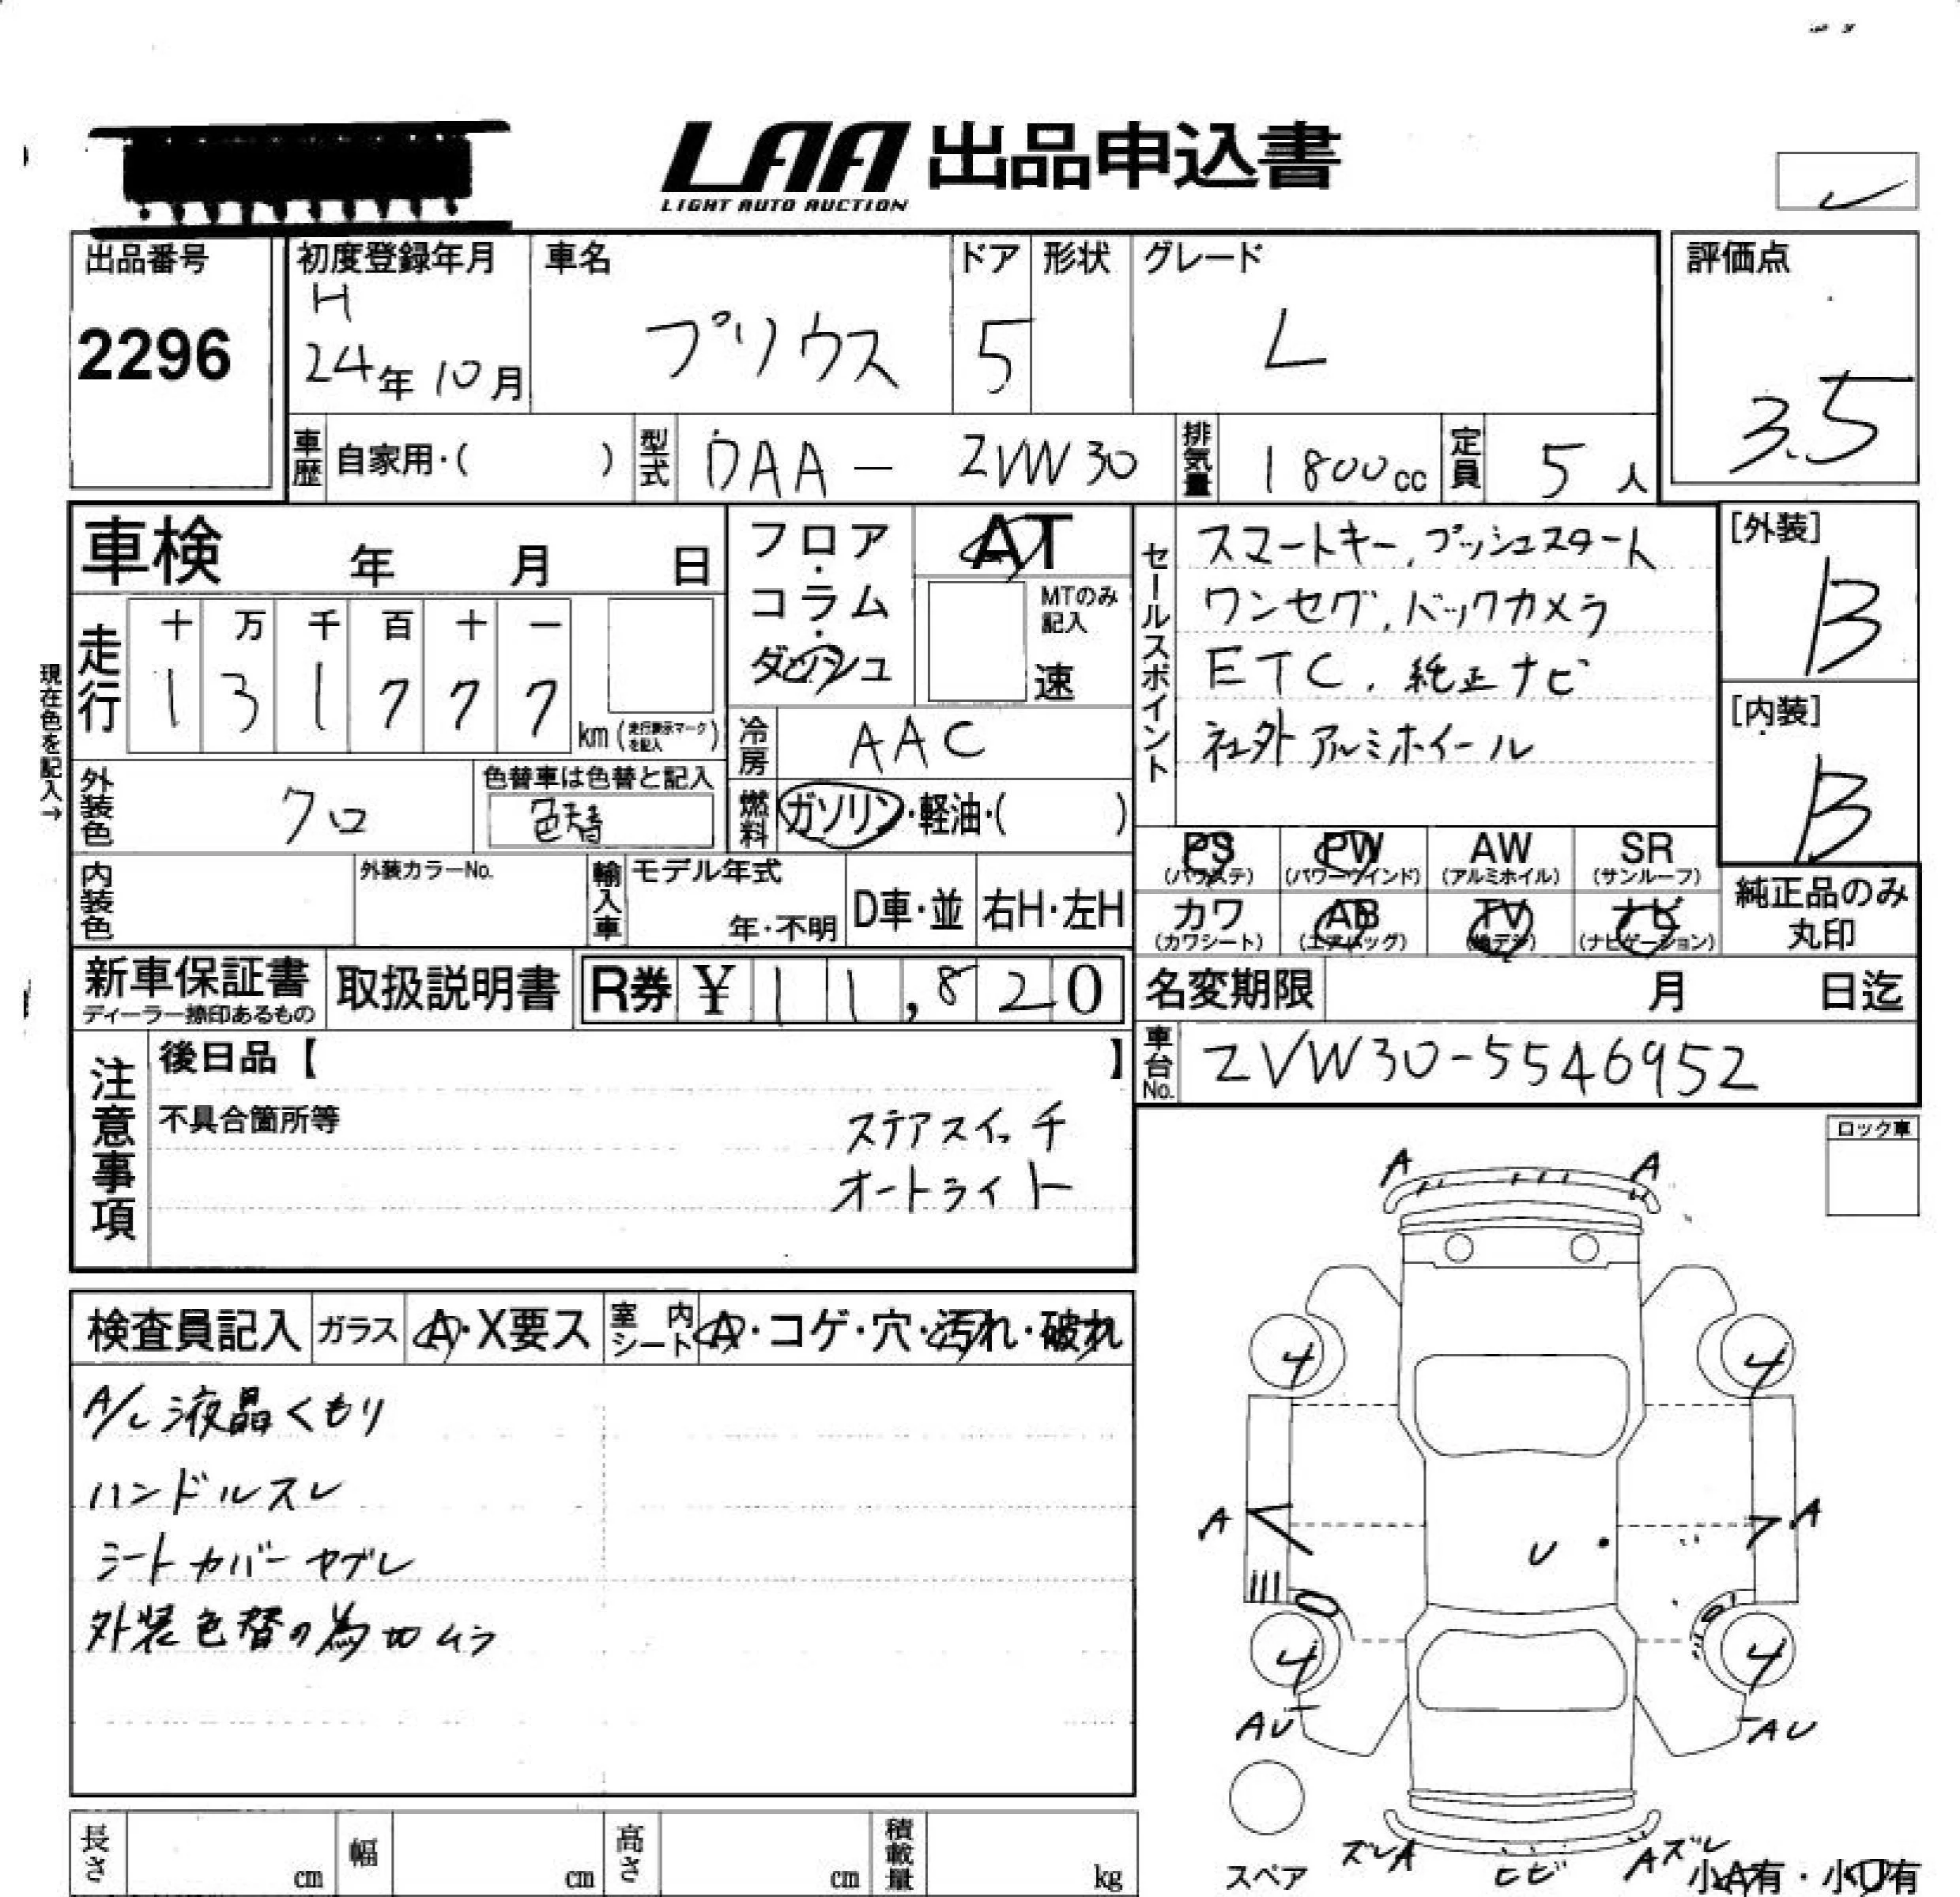 LAA 出品申込書
LIGHT AUTO AUCTION
出品番号
2296
初度登録年月
H
24年 10月
車名
プリウス
ドア
5
形状
グレード
L
評価点
3.5
車歴 自家用・( )
型式 DAA - ZVW30
排気量 1800cc
定員 5人
車検 年 月 日
走行
十 万 千 百 十 一
1 3 1 7 7 7
km (走行表示マークを記入)
現在色を記入→
フロア・コラム・ダッシュ
AT
MTのみ記入
速
冷房 AAC
燃料 ガソリン・軽油・( )
セールスポイント
スマートキー, プッシュスタート
ワンセグ, バックカメラ
ETC, 純正ナビ
社外アルミホイール
[外装]
B
[内装]
B
外装色 クロ
色替車は色替と記入
色替
内装色
外装カラーNo.
輸入車
モデル年式
年・不明
D車・並
右H・左H
PS
(パワステ)
PW
(パワーウインド)
AW
(アルミホイル)
SR
(サンルーフ)
カワ
(カワシート)
AB
(エアバッグ)
TV
(地デジ)
ナビ
(ナビゲーション)
純正品のみ
丸印
新車保証書
ディーラー捺印あるもの
取扱説明書
R券 ¥11,820
名変期限 月 日迄
車台No. ZVW30-5546952
注意事項
後日品【 】
不具合箇所等
ステアスイッチ
オートライト
ロック車
検査員記入
ガラス A・X要ス
室内シート A・コゲ・穴・汚れ・破れ
A/C 液晶くもり
ハンドルスレ
シートカバーヤブレ
外装色替の為カロムラ
A A
4 4
A A
U
4 4
AU AU
スペア
ズレA ヒビ Aズレ
小A有・小U有
長さ cm
幅 cm
高さ cm
積載量 kg